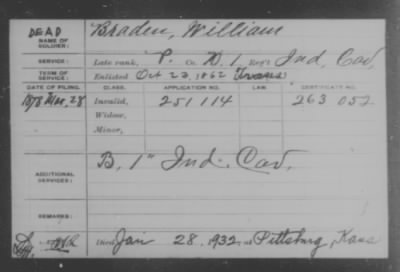 DEAD
NAME OF SOLDIER: Braden, William
SERVICE: Late rank, P. Co. D. 1 Reg't Ind. Cav,
TERM OF SERVICE: Enlisted Oct 22, 1862
DATE OF FILING. CLASS. APPLICATION NO. LAW. CERTIFICATE NO.
1878 Mar. 28 Invalid, 251 114 263 052
Widow,
Minor,
ADDITIONAL SERVICES: B, 1" Ind. Cav.
REMARKS:
Died Jan 28, 1932, at Pittsburg, Kans